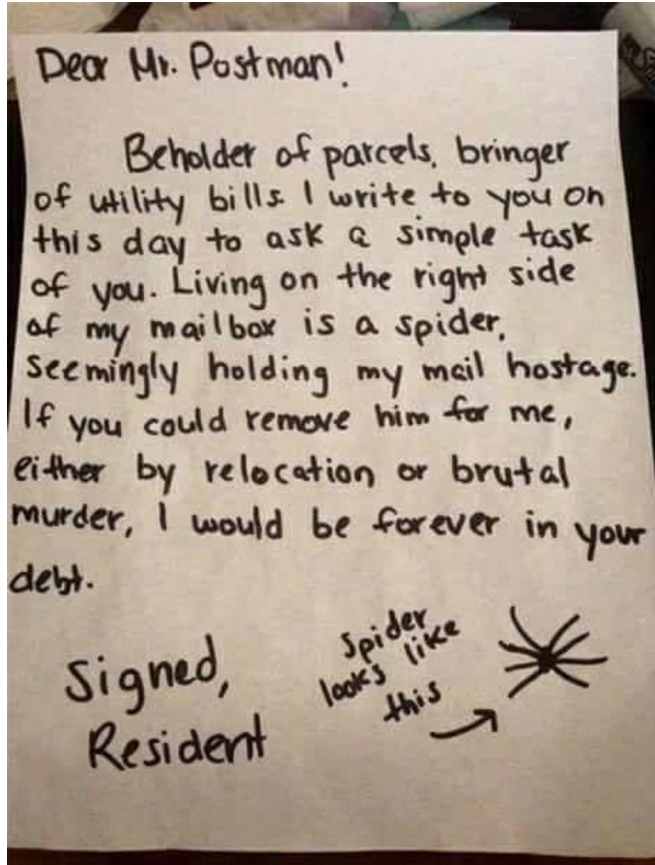 Dear Mr. Postman!
Beholder of parcels, bringer
of utility bills I write to you on
this day to ask a simple task
of you. Living on the right side
of my mailbox is a spider,
seemingly holding my mail hostage.
If you could remove him for me,
either by relocation or brutal
murder, I would be forever in your
debt.
Signed,
Resident
Spider
looks like
this